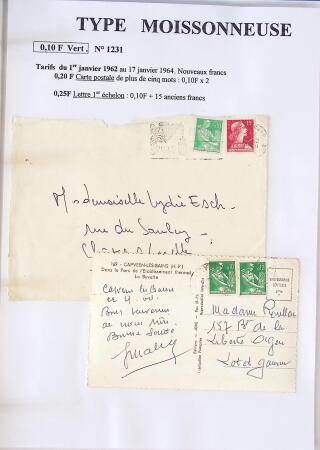 TYPE MOISSONNEUSE
0,10 F Vert. N° 1231
Tarifs du 1er janvier 1962 au 17 janvier 1964. Nouveaux francs
0,20 F Carte postale de plus de cinq mots : 0,10F x 2
0,25F Lettre 1er échelon : 0,10F + 15 anciens francs
Mademoiselle Lydie Esch
rue du Saulcy
169 - CAPVERN-LES-BAINS (H.-P.)
Dans le Parc de l'Etablissement thermal
La Buvette
Capvern les Bains
Bons souvenirs
de nous
Bonne Santé
Madame
157 Bd de la
Liberté Agen
Lot et Garonne